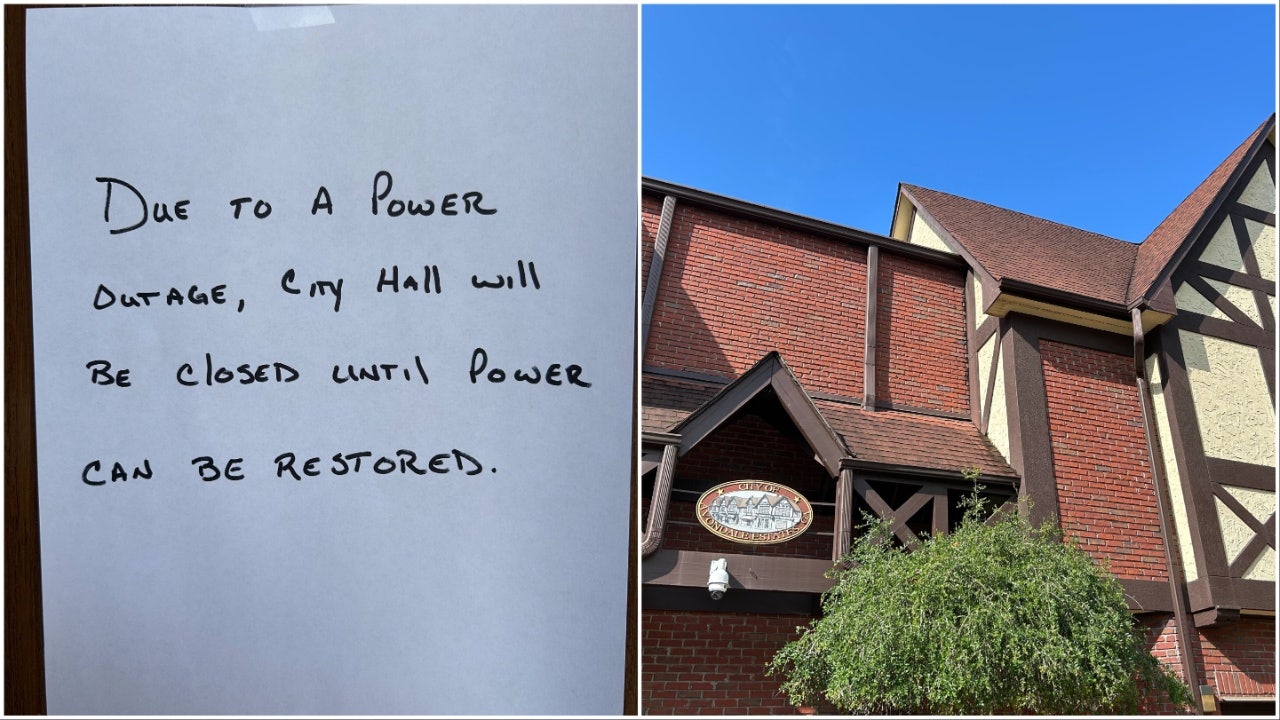 Due to A Power
outage, City Hall will
Be closed until Power
can be restored.
CITY OF
AVONDALE ESTATES